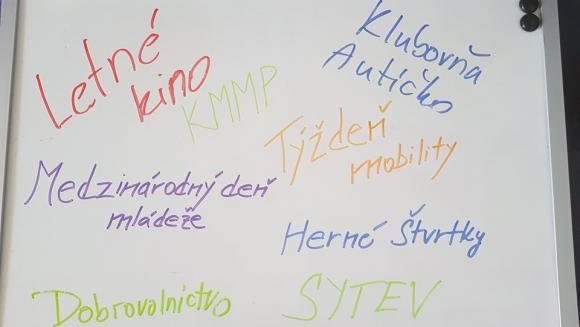 Letné
kino
KMMP
Klubovňa
Autíčko
Týždeň
mobility
Medzinárodný deň
mládeže
Herné Štvrtky
Dobrovolníctvo
SYTEV